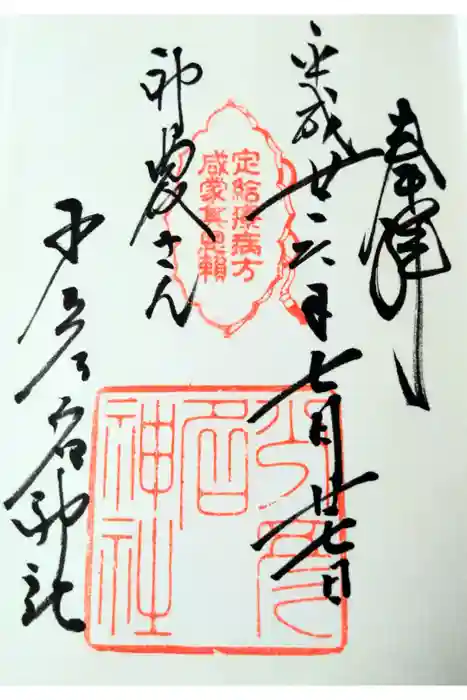 奉拝
平成廿六年七月廿七日
神農さん
少彦名神社
定給療病方
咸蒙其恩頼
少彦
名
神社